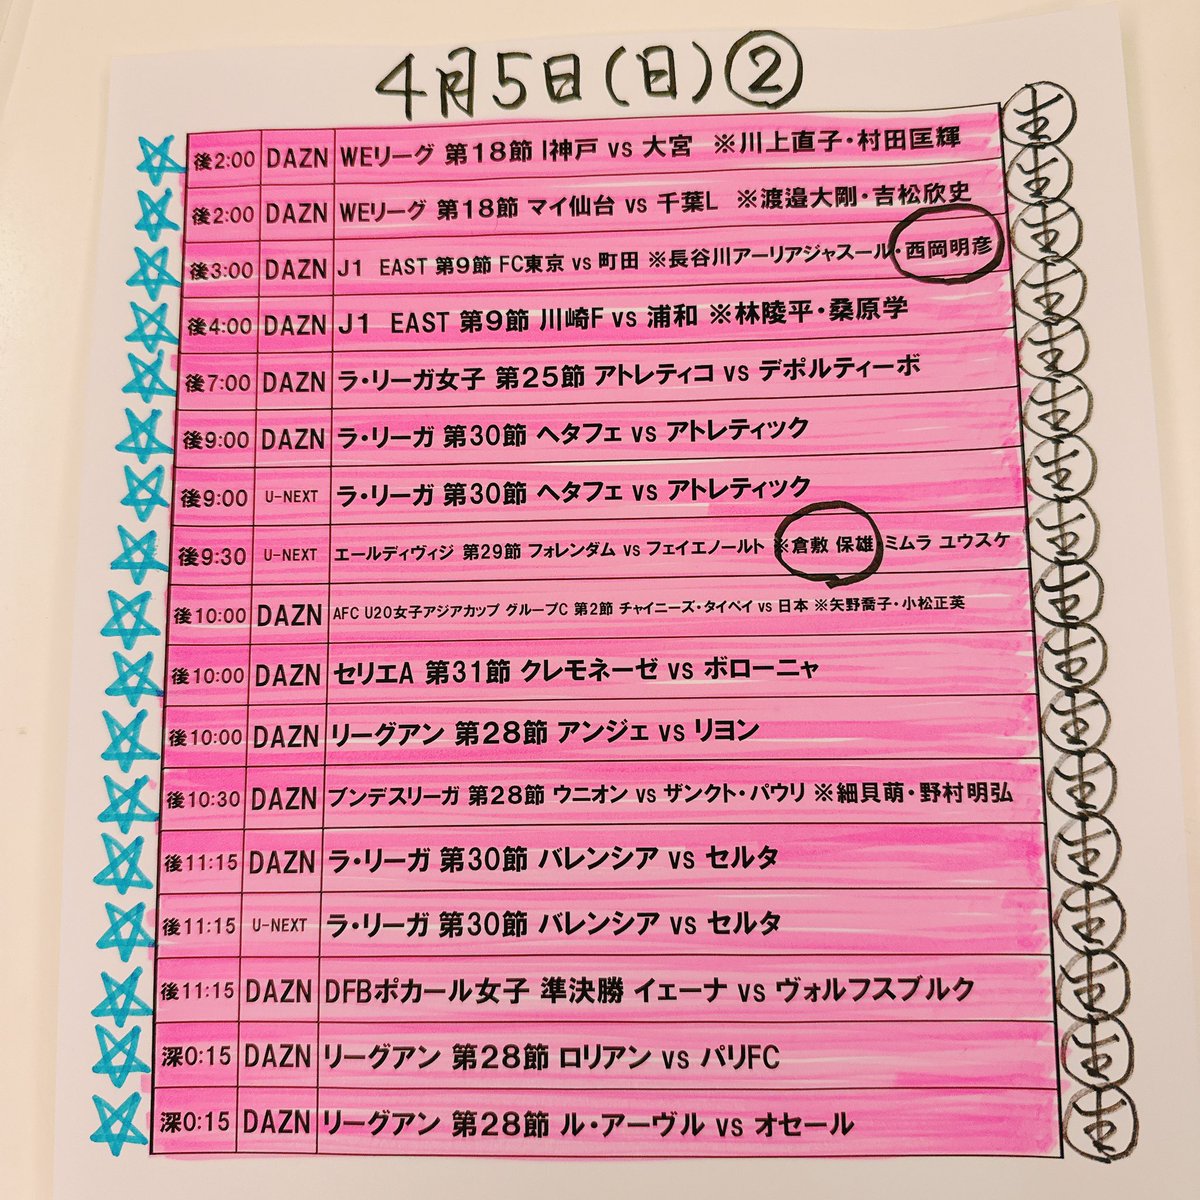 4月5日(日)②
後2:00 DAZN WEリーグ 第18節 I神戸 vs 大宮 ※川上直子・村田匡輝
後2:00 DAZN WEリーグ 第18節 マイ仙台 vs 千葉L ※渡邉大剛・吉松欣史
後3:00 DAZN J1 EAST 第9節 FC東京 vs 町田 ※長谷川アーリアジャスール・西岡明彦
後4:00 DAZN J1 EAST 第9節 川崎F vs 浦和 ※林陵平・桑原学
後7:00 DAZN ラ・リーガ女子 第25節 アトレティコ vs デポルティーボ
後9:00 DAZN ラ・リーガ 第30節 ヘタフェ vs アトレティック
後9:00 U-NEXT ラ・リーガ 第30節 ヘタフェ vs アトレティック
後9:30 U-NEXT エールディヴィジ 第29節 フォレンダム vs フェイエノールト ※倉敷 保雄 ミムラ ユウスケ
後10:00 DAZN AFC U20女子アジアカップ グループC 第2節 チャイニーズ・タイペイ vs 日本 ※矢野喬子・小松正英
後10:00 DAZN セリエA 第31節 クレモネーゼ vs ボローニャ
後10:00 DAZN リーグアン 第28節 アンジェ vs リヨン
後10:30 DAZN ブンデスリーガ 第28節 ウニオン vs ザンクト・パウリ ※細貝萌・野村明弘
後11:15 DAZN ラ・リーガ 第30節 バレンシア vs セルタ
後11:15 U-NEXT ラ・リーガ 第30節 バレンシア vs セルタ
後11:15 DAZN DFBポカール女子 準決勝 イェーナ vs ヴォルフスブルク
深0:15 DAZN リーグアン 第28節 ロリアン vs パリFC
深0:15 DAZN リーグアン 第28節 ル・アーヴル vs オセール